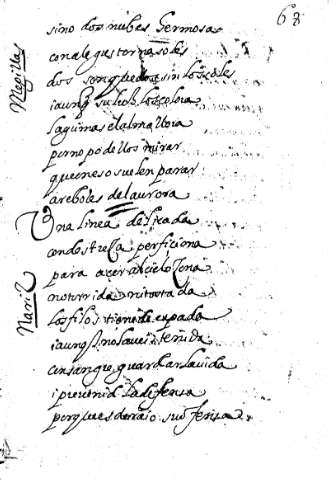 68
sino dos nubes hermosas
con alegustornasoles
dos
Mexillas
iaunq su luz los colora
lagrimas el alma llora
por no podellos mirar
que en eso suelen parar
areboles del aurora
Una linea delicada
con destreza perficiona
para açer al cielo Zona
no torrida
Nariz
los filos tiene de espada
iaunq no la uei teñida
en sangre guardar la uida
i preuenid la defensa
porque es de raio su ofensa